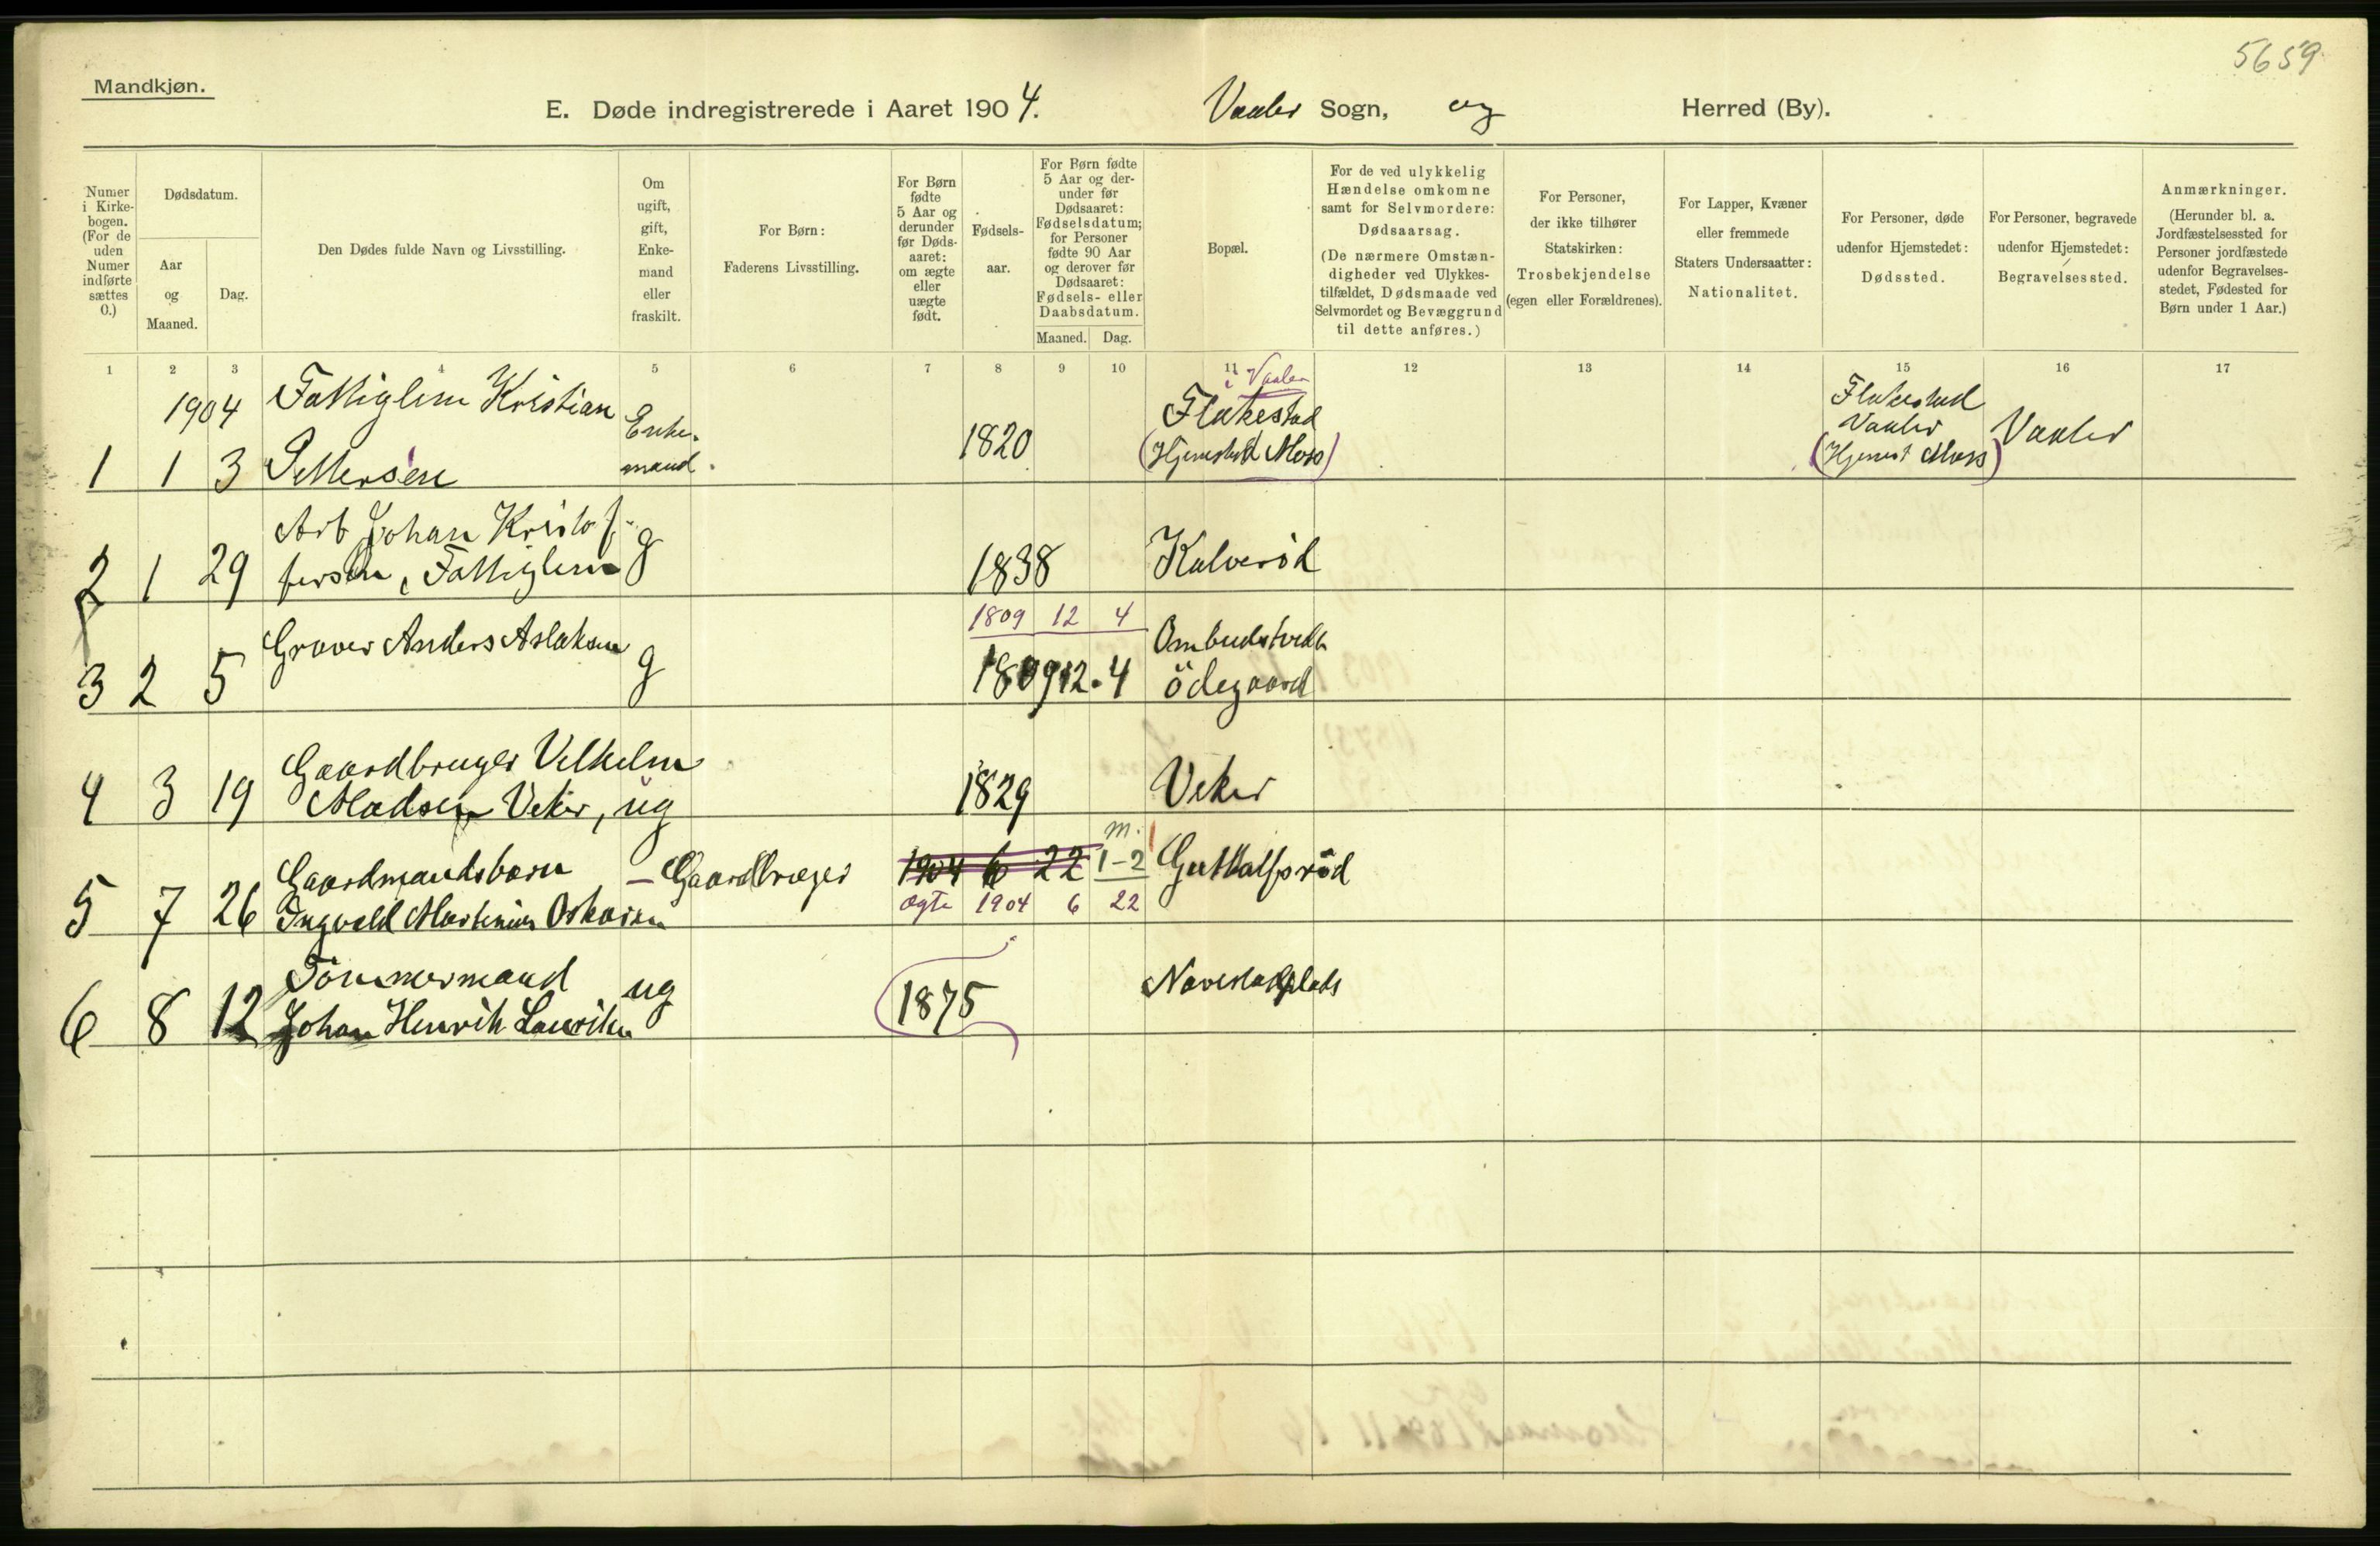 5659
Mandkjøn.
E. Døde indregistrerede i Aaret 1904. Vaaler Sogn, og Herred (By).
Numer i Kirke-bogen. (For de uden Numer indførte sættes 0.)
Dødsdatum.
Aar og Maaned.
Dag.
Den Dødes fulde Navn og Livsstilling.
Om ugift, gift, Enke-mand eller fraskilt.
For Børn: Faderens Livsstilling.
For Børn fødte 5 Aar og derunder før Døds-aaret: om ægte eller uægte født.
Fødsels-aar.
For Børn fødte 5 Aar og der-under før Dødsaaret: Fødselsdatum; for Personer fødte 90 Aar og derover før Dødsaaret: Fødsels- eller Daabsdatum.
Maaned. Dag.
Bopæl.
For de ved ulykkelig Hændelse omkomne samt for Selvmordere: Dødsaarsag. (De nærmere Omstæn-digheder ved Ulykkes-tilfældet, Dødsmaade ved Selvmordet og Bevæggrund til dette anføres.)
For Personer, der ikke tilhører Statskirken: Trosbekjendelse (egen eller Forældrenes).
For Lapper, Kvæner eller fremmede Staters Undersaatter: Nationalitet.
For Personer, døde udenfor Hjemstedet: Dødssted.
For Personer, begravede udenfor Hjemstedet: Begravelsessted.
Anmærkninger. (Herunder bl. a. Jordfæstelsessted for Personer jordfæstede udenfor Begravelses-stedet, Fødested for Børn under 1 Aar.)
1 2 3 4 5 6 7 8 9 10 11 12 13 14 15 16 17
i Vaaler
1904 Fattiglem Kristian Enke- Flakestad Flakestad
Vaaler
1 1 3 Pettersen mand. 1820 (Hjemsted Moss) (Hjemst Moss) Vaaler
Arb Johan Kristof-
2 1 29 fersen, Fattiglem g 1838 Kalverød
1809 12 4
Graver Anders Aslaksen g Ombudstvedt
3 2 5 1809 12. 4 ödegaard
Gaardbruger Vilhelm
4 3 19 Madsen Veker, ug 1829 Veker
m.
Gaardmandsbarn – Gaardbruger 1904 6 22 1-2 Guthalfsröd
5 7 26 Ingvald Martinius Oskarsen ægte 1904 6 22
Tömmermand ug Navestadplads
6 8 12 Johan Henrik Lauritsen 1875